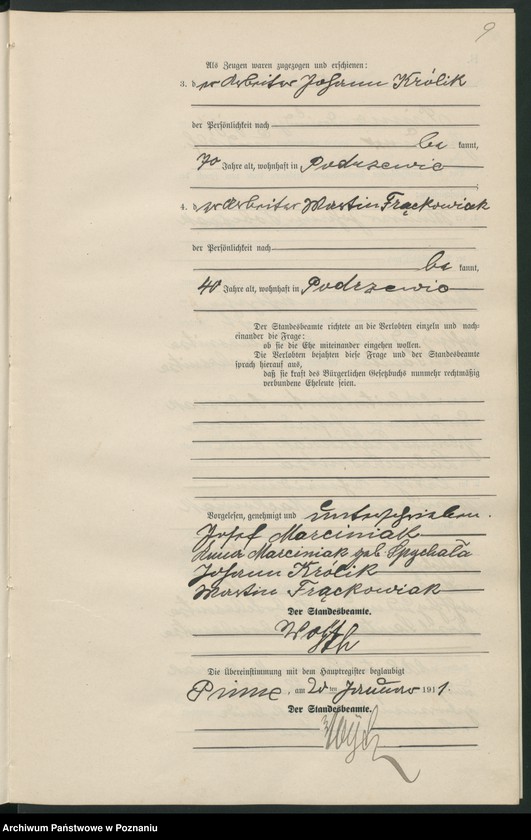 9
Als Zeugen waren zugezogen und erschienen:
3. der Arbeiter Johann Królik
der Persönlichkeit nach
be kannt,
70 Jahre alt, wohnhaft in Podrzewie
;
4. der Arbeiter Martin Frąckowiak
der Persönlichkeit nach
be kannt,
40 Jahre alt, wohnhaft in Podrzewie
Der Standesbeamte richtete an die Verlobten einzeln und nach-
einander die Frage:
ob sie die Ehe miteinander eingehen wollen.
Die Verlobten bejahten diese Frage und der Standesbeamte
sprach hierauf aus,
daß sie kraft des Bürgerlichen Gesetzbuchs nunmehr rechtmäßig
verbundene Eheleute seien.
Vorgelesen, genehmigt und unterschrieben.
Josef Marciniak
Anna Marciniak geb. Spychała
Johann Królik
Martin Frąckowiak
Der Standesbeamte.
Die Übereinstimmung mit dem Hauptregister beglaubigt
Pinne, am 20 ten Januar 1911.
Der Standesbeamte.
Archiwum Państwowe w Poznaniu